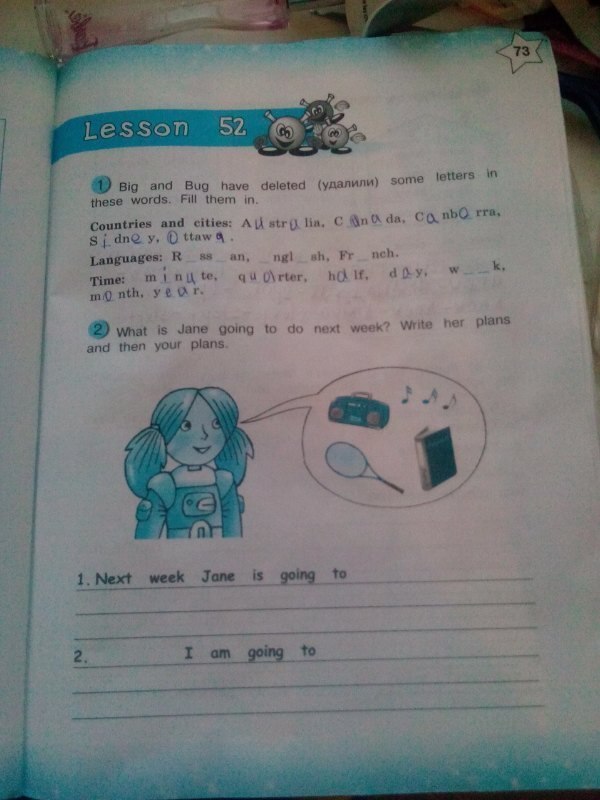 73
Lesson 52
1 Big and Bug have deleted (удалили) some letters in
these words. Fill them in.
Countries and cities: Australia, Canada, Canberra,
Sidney, Ottawa.
Languages: R_ss_an, _ngl_sh, Fr_nch.
Time: minute, quarter, half, day, w__k,
month, year.
2 What is Jane going to do next week? Write her plans
and then your plans.
1. Next week Jane is going to
2. I am going to